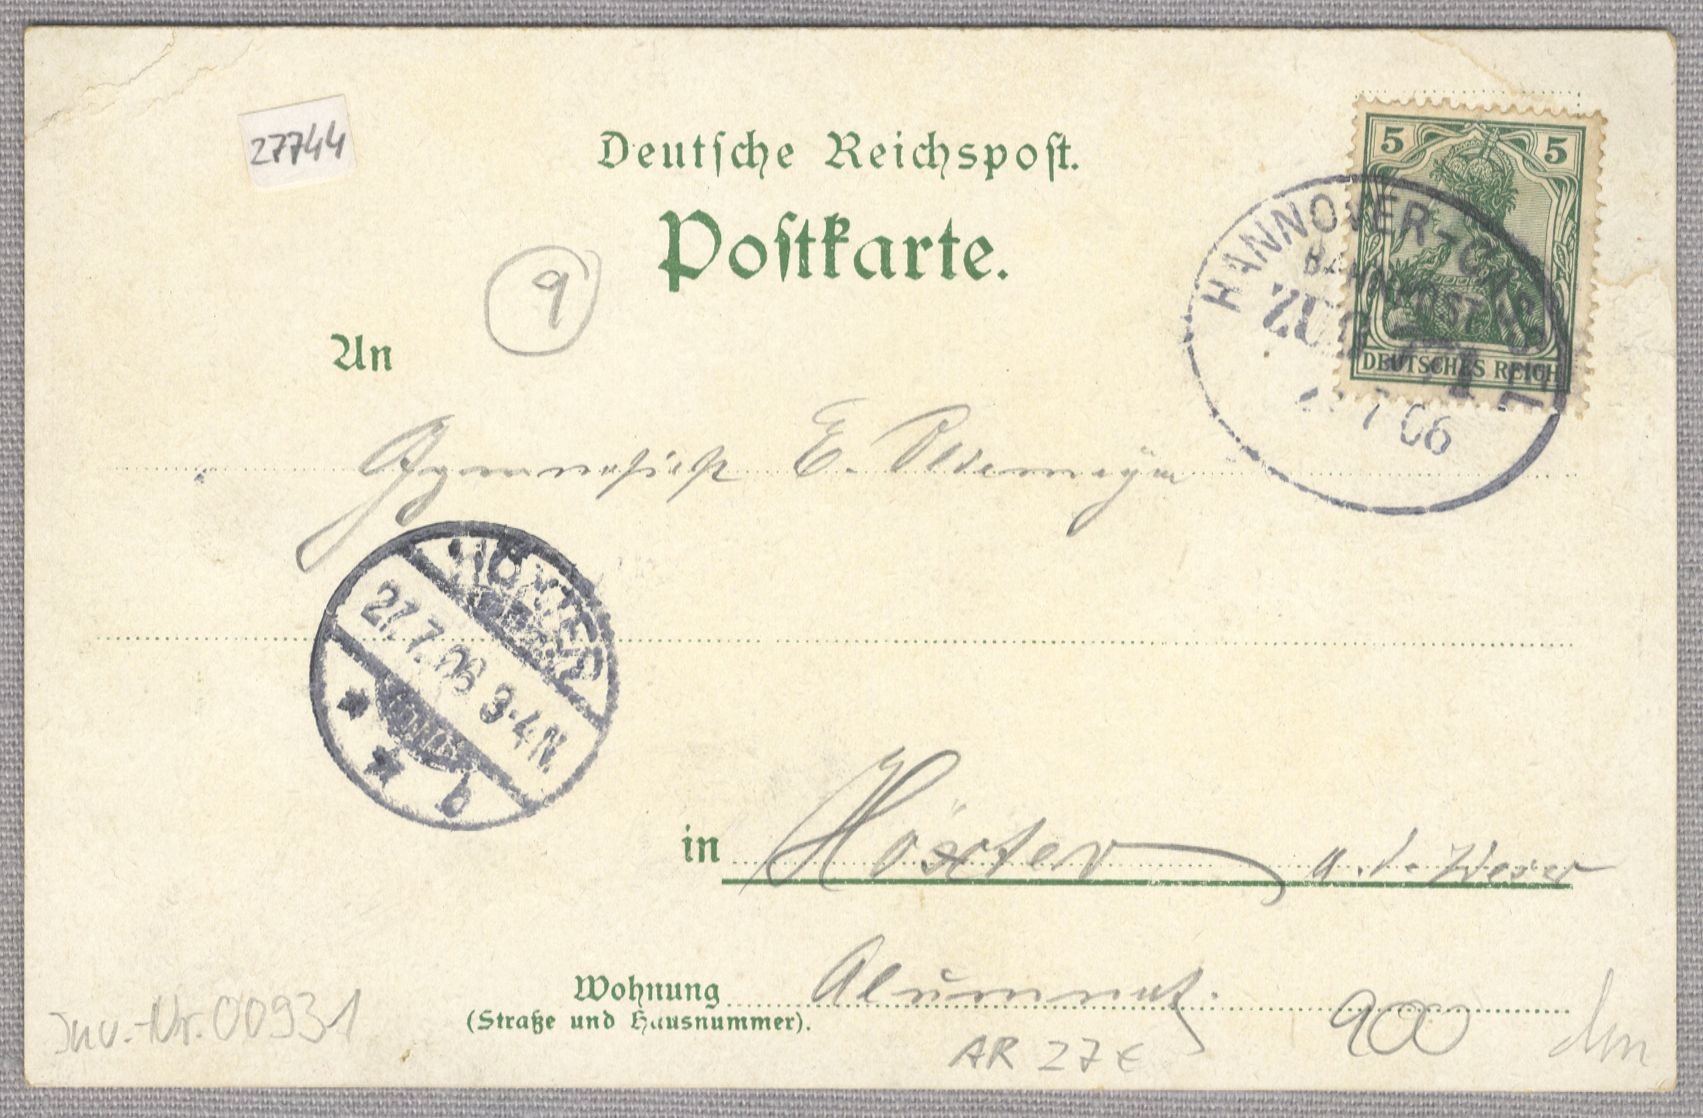 27744
Deutsche Reichspost.
Postkarte.
5 5
DEUTSCHES REICH
HANNOVER-CASSEL
BAHNPOST
ZUG
7 06
9
An
Gymnasiast E.
HÖXTER
27.7.06 3-4N.
* * b
in Höxter a. d. Weser
Wohnung Alumnat.
(Straße und Hausnummer).
Inv.-Nr. 00931
AR 27 €